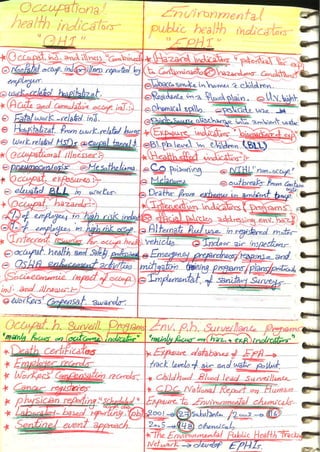 Occupational
health indicators
"OHI"
* Occupat. inj. and illness "combined"
① Nonfatal occup. inj. or illness reported by
employer.
② work-related hospitalizat.
* Acute and Cumulative occup. inj:-
① Fatal work-related inj.
② Hospitalizat. from work related burns
③ work related MSDs
* Occupational illnesses:-
① pneumoconiosis Mesothelioma.
* Occupat. exposures:-
① elevated BLL in worker
* Occupat. hazards:-
① % of employees in high risk indust
② % of employees in high risk occup.
* Intervent. resources for occup. health
① occupat. health and safety professionals
② OSHA enforcement activities
* Socioeconomic impact of occup.
inj. and illness:-
① workers' Compensat. awards.
Environmental
public health indicators
"EPHI"
* Hazard indicators: potential for exp.
to Contaminants or hazardous conditions
① Tobacco smoke in homes c children.
② Residence in a flood plain. ③ UV light
④ Chemical spills. ⑤ pesticide use
⑥ point-source discharge into ambient water
* Exposure indicators: biomarker of exp.
① Bl. pb level in children (BLL)
* Health effect indicators:-
① CO poisoning ② NIHL "non.occup."
③ Melanoma ④ outbreaks from
⑤ Deaths from extremes in ambient temp
* Intervention indicators
official policies addressing env. hazard
① Alternate fuel use in registered motor
vehicles ② Indoor air inspections.
③ Emergency preparedness, response, and
mitigation training programs / plans / protocols
④ Implemental. of Sanitary Surveys
Occupat. h. Surveill. Programs
"mainly focus on outcome indicator"
* Death certificates
* Employer records
* Workers' Compensation records.
* Cancer registries
* physician reporting "scheduled"
* Laboratory-based reporting (pb)
* Sentinel event approach.
Env. p.h. Surveillance Programs
"mainly focus on haz. & exp. indicators"
* Exposure databases of EPA →
track levels of air and water pollut.
* Childhood Blood lead surveillance
* CDC National Report on Human
Exposure to Environmental chemicals.
2001 → 27 substance / 2003 → 116
2005 → 148 chemical.
* The Environmental Public Health Tracking
Network → develop EPHIs.